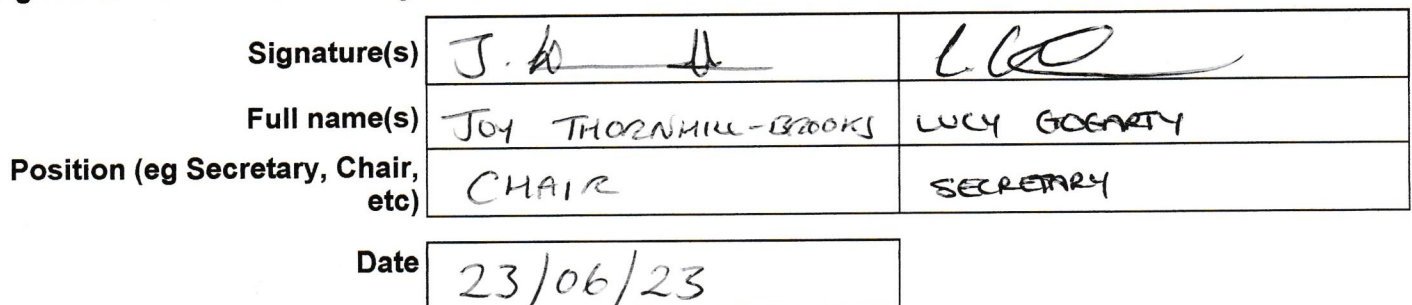 Signature(s) J.
Full name(s) JOY THORNHILL-BROOKS LUCY GOGARTY
Position (eg Secretary, Chair, etc) CHAIR SECRETARY
Date 23/06/23